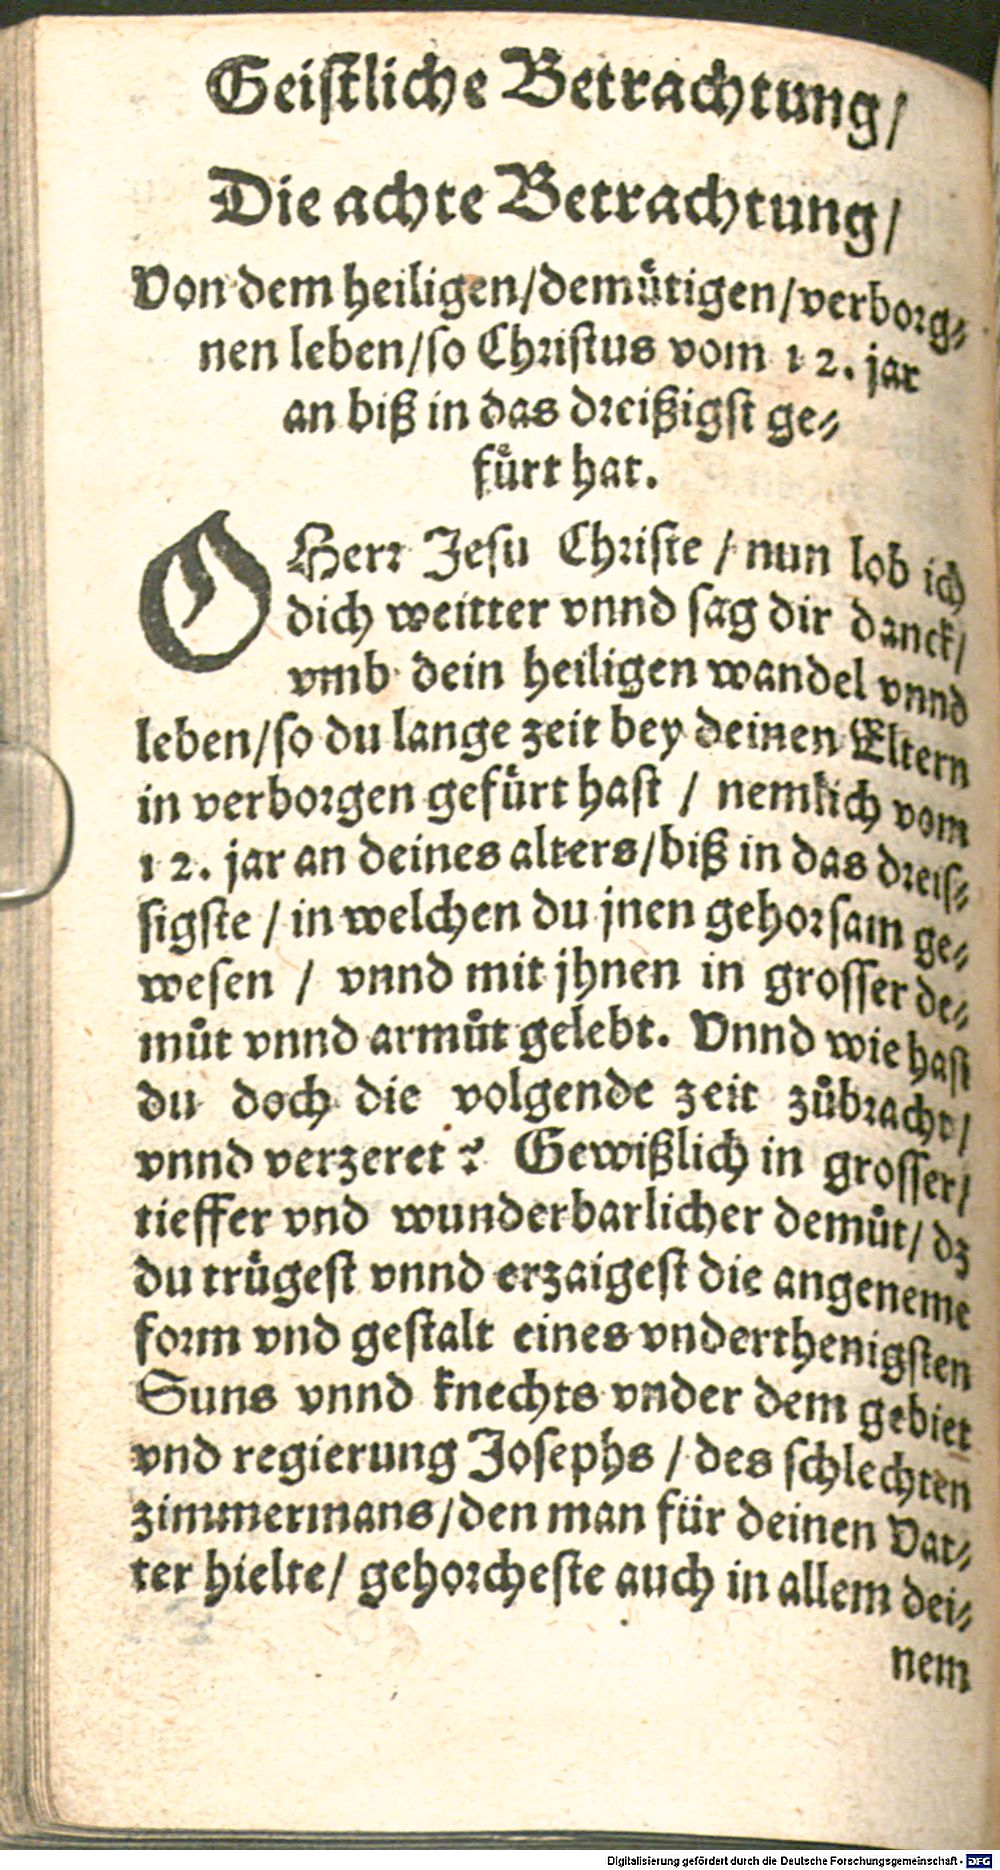 Geiſtliche Betrachtung/
Die achte Betrachtung/
Von dem heiligen/demuͤtigen/verborg⸗
nen leben/ſo Chriſtus vom 12. jar
an biß in das dreißigſt ge⸗
fuͤrt hat.
O Herr Jeſu Chriſte / nun lob ich
dich weitter vnnd ſag dir danck/
vmb dein heiligen wandel vnnd
leben/ſo du lange zeit bey deinen Eltern
in verborgen gefuͤrt haſt / nemlich vom
12. jar an deines alters/biß in das dreiſ⸗
ſigſte / in welchen du jnen gehorſam ge⸗
weſen / vnnd mit jhnen in groſſer de⸗
muͦt vnnd armuͦt gelebt. Vnnd wie haſt
du doch die volgende zeit zuͦbracht/
vnnd verzeret? Gewißlich in groſſer/
tieffer vnd wunderbarlicher demuͦt/ dz
du truͤgeſt vnnd erzaigeſt die angeneme
form vnd geſtalt eines vnderthenigſten
Suns vnnd knechts vnder dem gebiet
vnd regierung Joſephs / des ſchlechten
zimmermans/den man für deinen Vat⸗
ter hielte/ gehorcheſte auch in allem dei⸗
nem
Digitalisierung gefördert durch die Deutsche Forschungsgemeinschaft - DFG